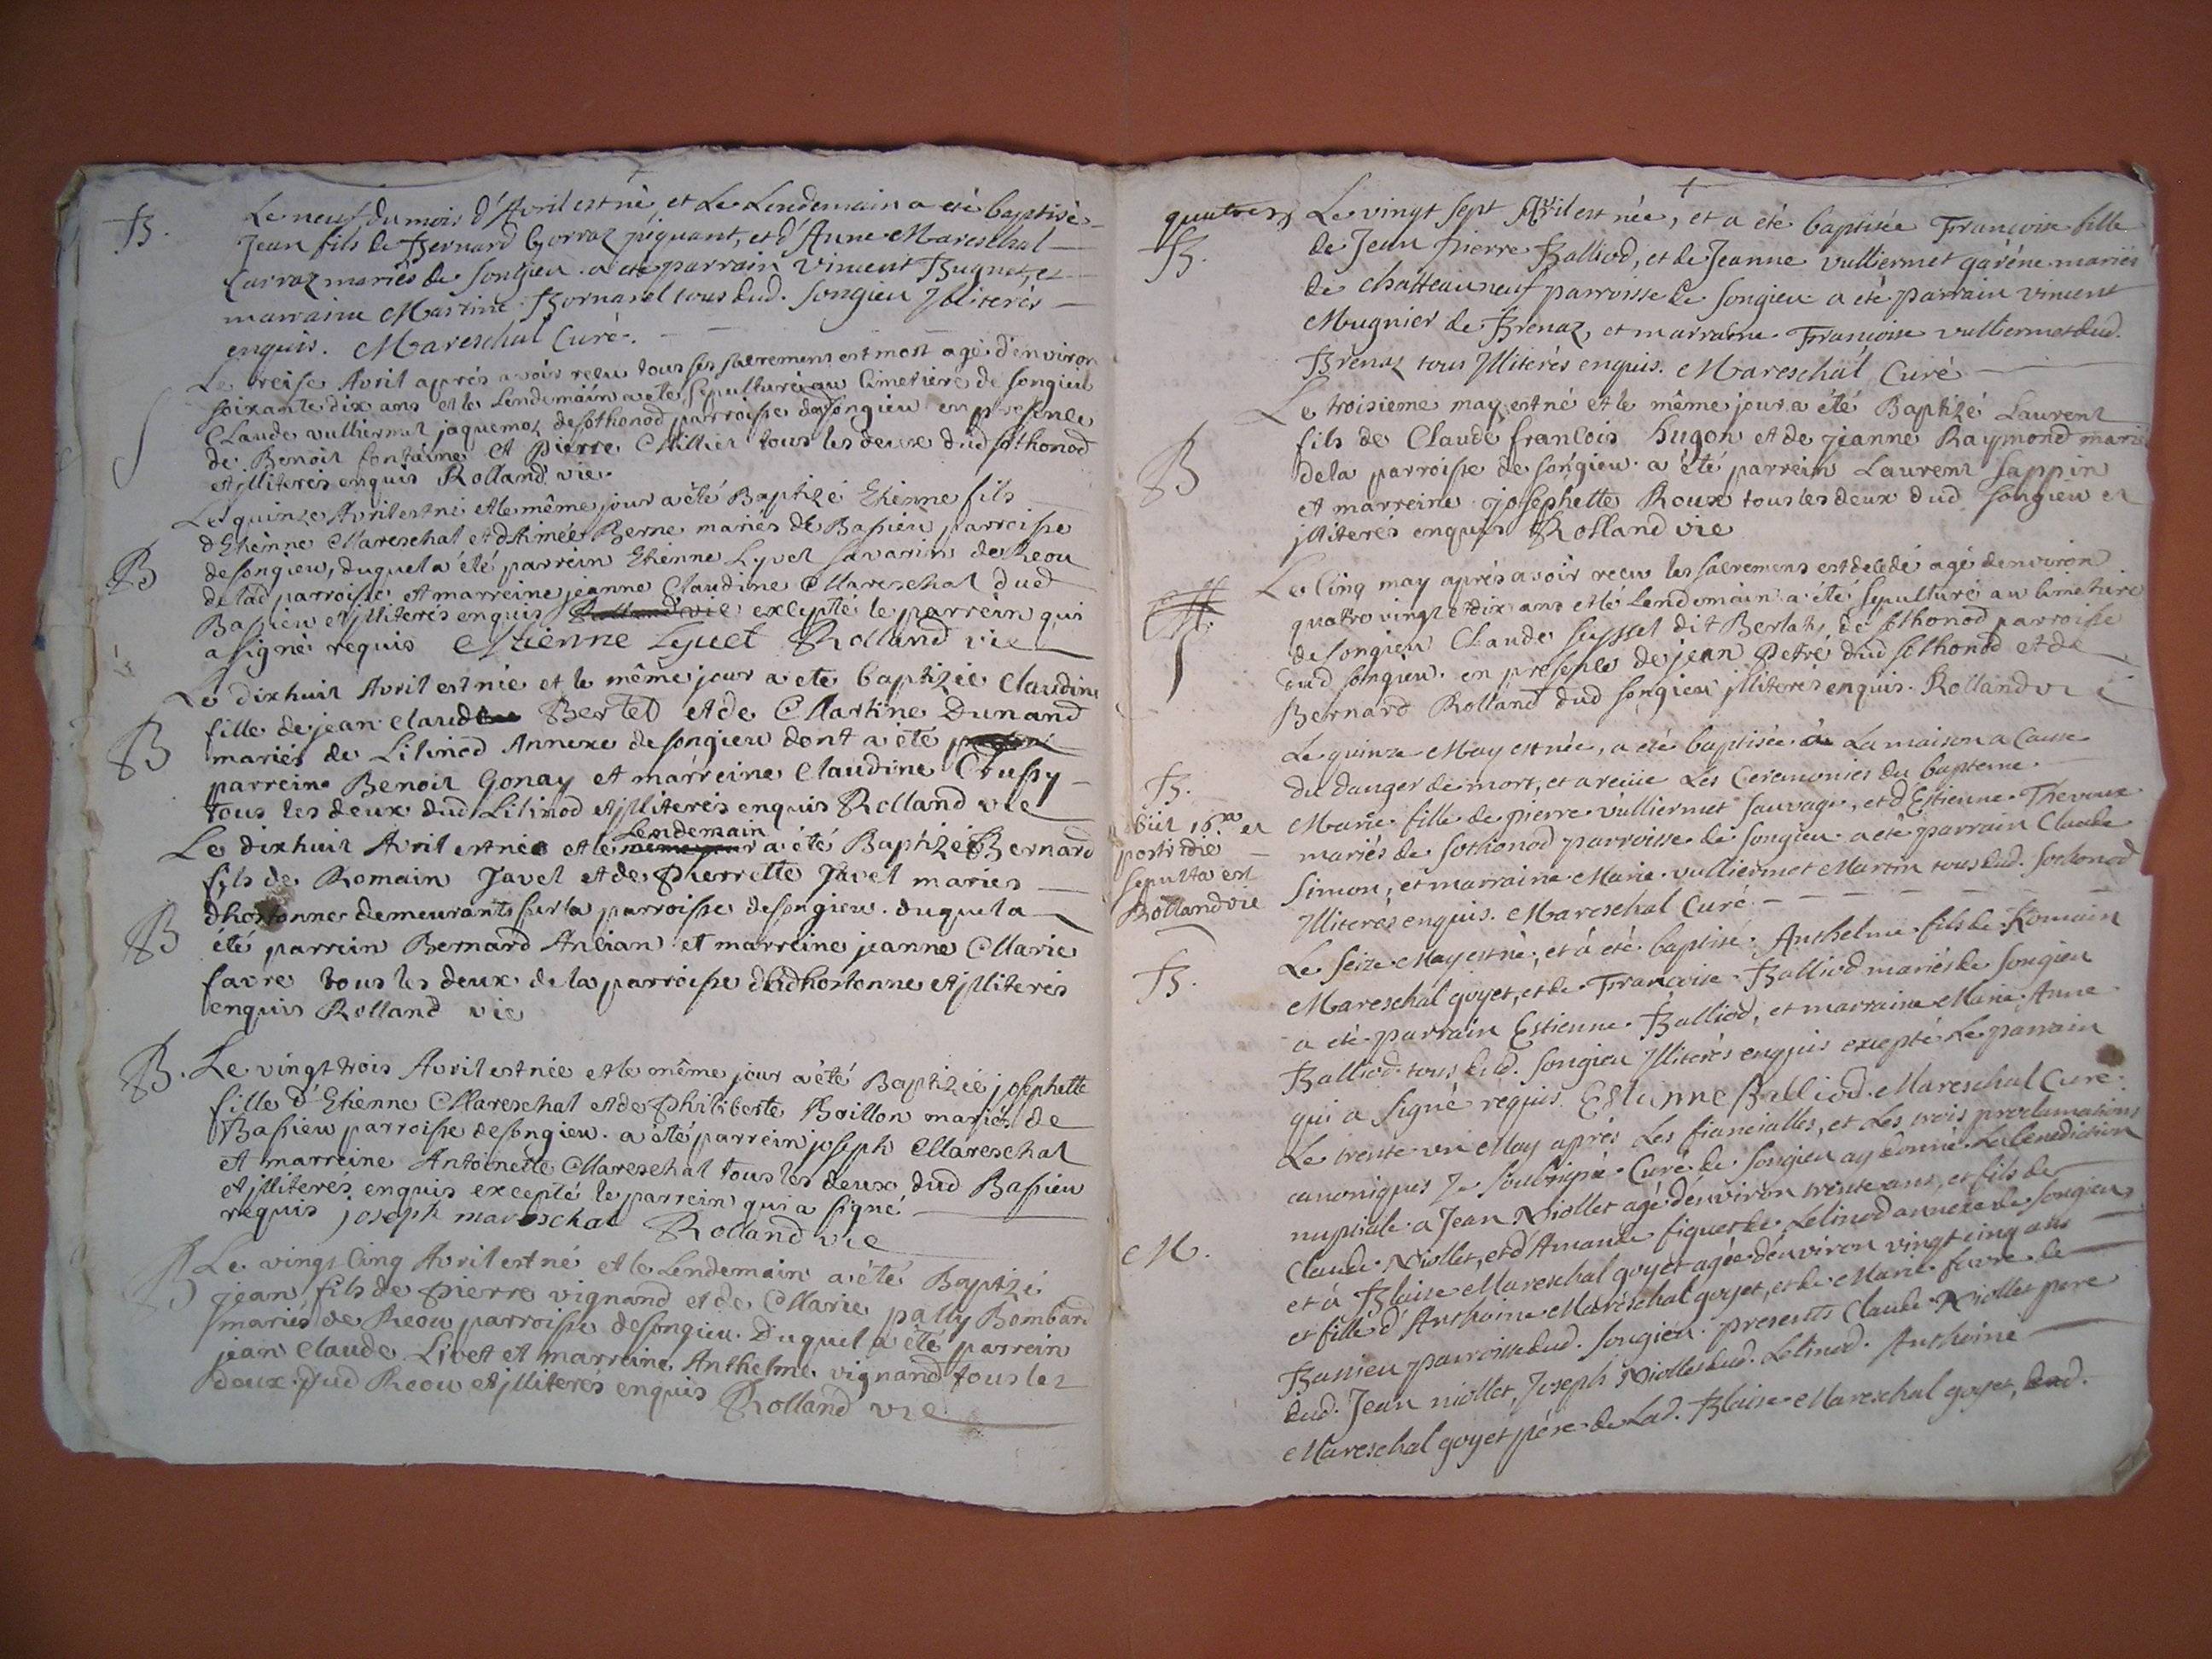 B.
Le neuf du mois d'Avril est né et Le Lendemain a eté baptisé
Jean fils de Bernard Gorraz piquant, et d'Anne Mareschal
Carraz mariés de Songieu a eté parrain Vincent Bugnet, et
marraine Martine Bornarel tous dud. Songieu Jlliterés
enquis. Mareschal Curé.
S
Le treise Avril aprés avoir reçu tous ses sacremens est mort agé d'environ
soixante dix ans et le Lendemain a eté sepulturé au cimetiere de Songieu
Claude vulliermet jaquemoz de sothonod parroisse de songieu en presence
de Benoit fontaine et pierre Millier tous les deux dud sothonod
et jlliterés enquis Rolland vic
B
Le quinze Avril est né et le même jour a été Baptizé Etienne fils
d'Etienne Mareschal et d'Aimée Berne mariés de Bassieu parroisse
de songieu, duquel a été parrein Etienne Lyvet savarin de Reou
de lad parroisse et marreine jeanne Claudine Mareschal dud
Bassieu et jlliterés enquis excepté le parrein qui
a signé requis Etienne Lyuet Rolland vic
B
Le dixhuit Avril est née et le même jour a eté baptizée Claudine
fille de jean claude Bertet et de Martine Dunand
mariés de Lilinod Annexe de songieu dont a été
parrein Benoit Gonay et marreine Claudine Clussy
tous les deux dud Lilinod et jlliterés enquis Rolland vic
Le dixhuit Avril est né et le Lendemain a été Baptizé Bernard
fils de Romain Javel et de Pierrette Javel mariés
B
dhostonne demeurants sur la parroisse de songieu. duquel a
été parrein Bernard Ancian et marreine jeanne Marie
favre tous les deux de la parroisse dudhostonne et jlliterés
enquis Rolland vic
B.
Le vingt trois Avril est née et le même jour a été Baptizée josephette
fille d'Etienne Mareschal et de Philiberte Baillon mariés de
Bassieu parroisse de songieu. a été parrein joseph Mareschal
et marreine Antoinette Mareschal tous les deux dud Bassieu
et jlliterés enquis excepté le parrein qui a signé
requis joseph mareschal Rolland vic
B
Le vingt Cinq Avril est né et le Lendemain a été Baptizé
jean fils de pierre vignand et de Marie pally Bombard
mariés de Reou parroisse de songieu. Duquel a été parrein
jean Claude Livet et marreine Anthelme vignand tous les
deux dud Reou et jlliterés enquis Rolland vic
B.
Le vingt sept Avril est née, et a été baptisée Françoise fille
de Jean pierre Balliod, et de Jeanne vulliermet garéne mariés
de chatteauneuf parroisse de Songieu a eté parrain vincent
Mugnier de Brenaz, et marraine Françoise vulliermet dud.
Brenaz tous Jlliterés enquis. Mareschal Curé
B
Le troisieme may est né et le même jour a été Baptizé Laurent
fils de Claude françois hugon et de jeanne Raymond mariés
de la parroisse de songieu. a été parrein Laurent Sappin
et marreine josephette Roux tous les deux dud songieu et
jlliterés enquis Rolland vic
Le Cinq may aprés avoir reçu les sacremens est decedé agé denviron
quatre vingt et dix ans et le Lendemain a été sepulturé au Cimetiere
de songieu Claude Seyssel dit Berlat, de sothonod parroisse
dud songieu. en presence de jean Petre dud sothonod et de
Bernard Rolland dud songieu jlliterés enquis. Rolland vic
B.
Le quinze May est née, a eté baptisée à La maison a Cause
du danger de mort, et a reçüe Les Ceremonies du bapteme
Marie fille de pierre vulliermet sauvage, et d'Estienne Thevoux
mariés de Sothonod parroisse de Songieu a eté parrain Claude
Simon, et marraine Marie vulliermet Martin tous dud. Sothonod
Jlliterés enquis. Mareschal Curé
obiit 16ta et
postridie
sepulta est
Rolland vic
B.
Le seize May est né, et à eté baptisé Anthelme fils de Romain
Mareschal goyet, et de Françoise Balliod mariés de Songieu
a eté parrain Estienne Balliod, et marraine Marie Anne
Balliod tous dud. Songieu Jlliterés enquis excepté Le parrain
qui a signé requis. Estienne Balliod. Mareschal Curé.
M.
Le trente un May aprés Les fiancialles, et Les trois proclamations
canoniques Je Soubsigné Curé de Songieu ay donné La benediction
nuptiale a Jean Niollet agé d'environ trente ans, et fils de
Claude Niollet, et d'Amande figuet de Lelinod annexe de Songieu
et à Blaise Mareschal goyet agée d'environ vingt cinq ans
et fille d'Anthoine Mareschal goyet, et de Marie favre de
Bassieu parroisse dud. Songieu. presents Claude Niollet pere
dud. Jean niollet, Joseph Niollet dud. Lelinod. Anthoine
Mareschal goyet pére de Lad. Blaise Mareschal goyet, dud.